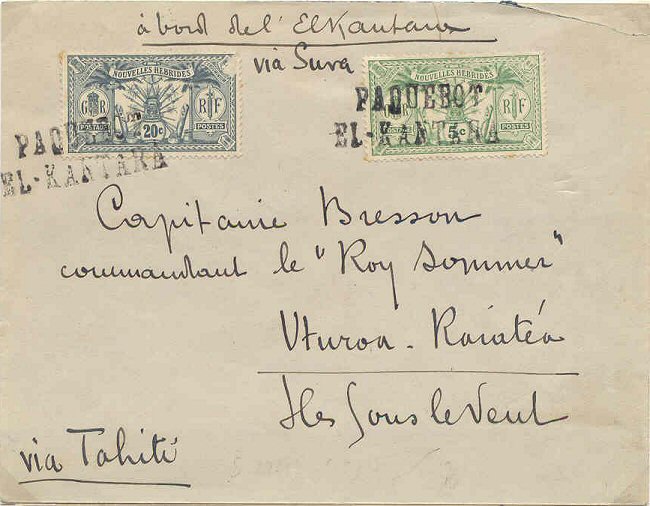 à bord de l' El Kantara
via Suva
NOUVELLES HEBRIDES
GR RF
POSTAGE 20c POSTES
NOUVELLES HEBRIDES
RF
5c POSTES
PAQUEBOT
EL-KANTARA
PAQUEBOT
EL-KANTARA
Capitaine Bresson
commandant le "Roy Sommer"
Uturoa - Raiatéa
Iles Sous le Vent
via Tahiti